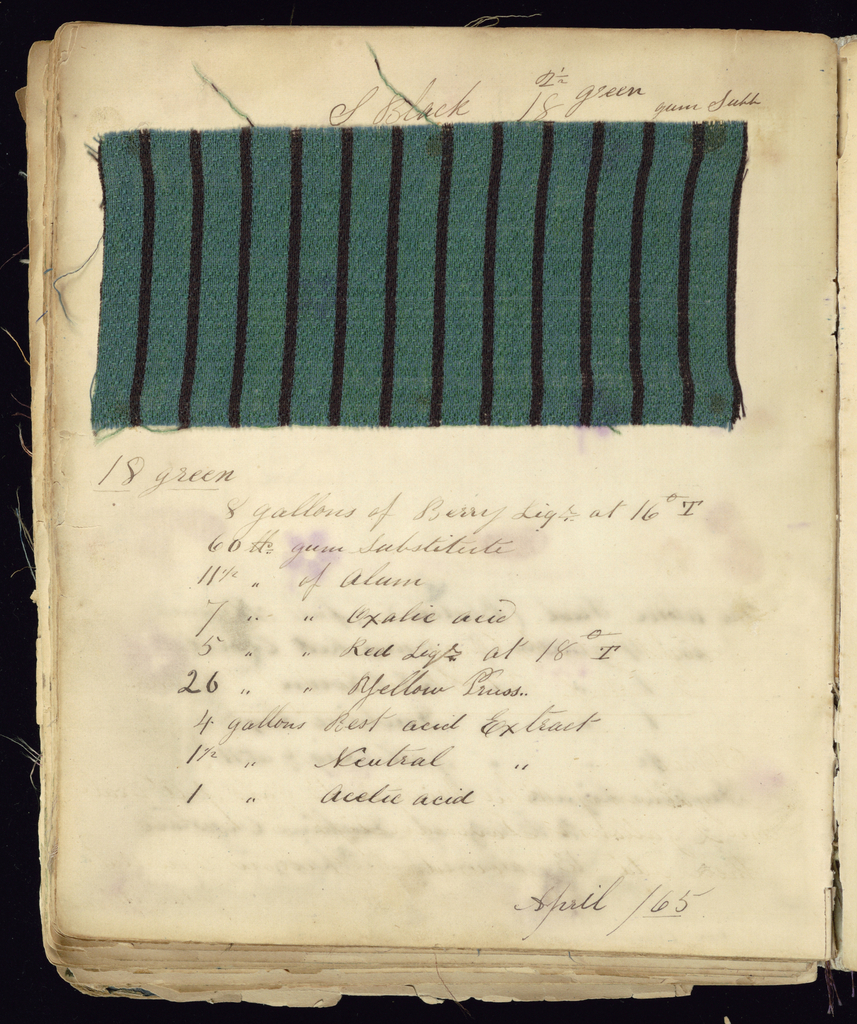 S Black 18 green gum Subb
18 green
8 gallons of Berry Liqr. at 16° T
60 lb. gum Substitute
11 1/2 " of Alum
7 " " Oxalic acid
5 " " Red Liqr. at 18° T
26 " " Yellow Pruss..
4 gallons Best acid Extract
1 1/2 " Neutral "
1 " Acetic acid
April /65